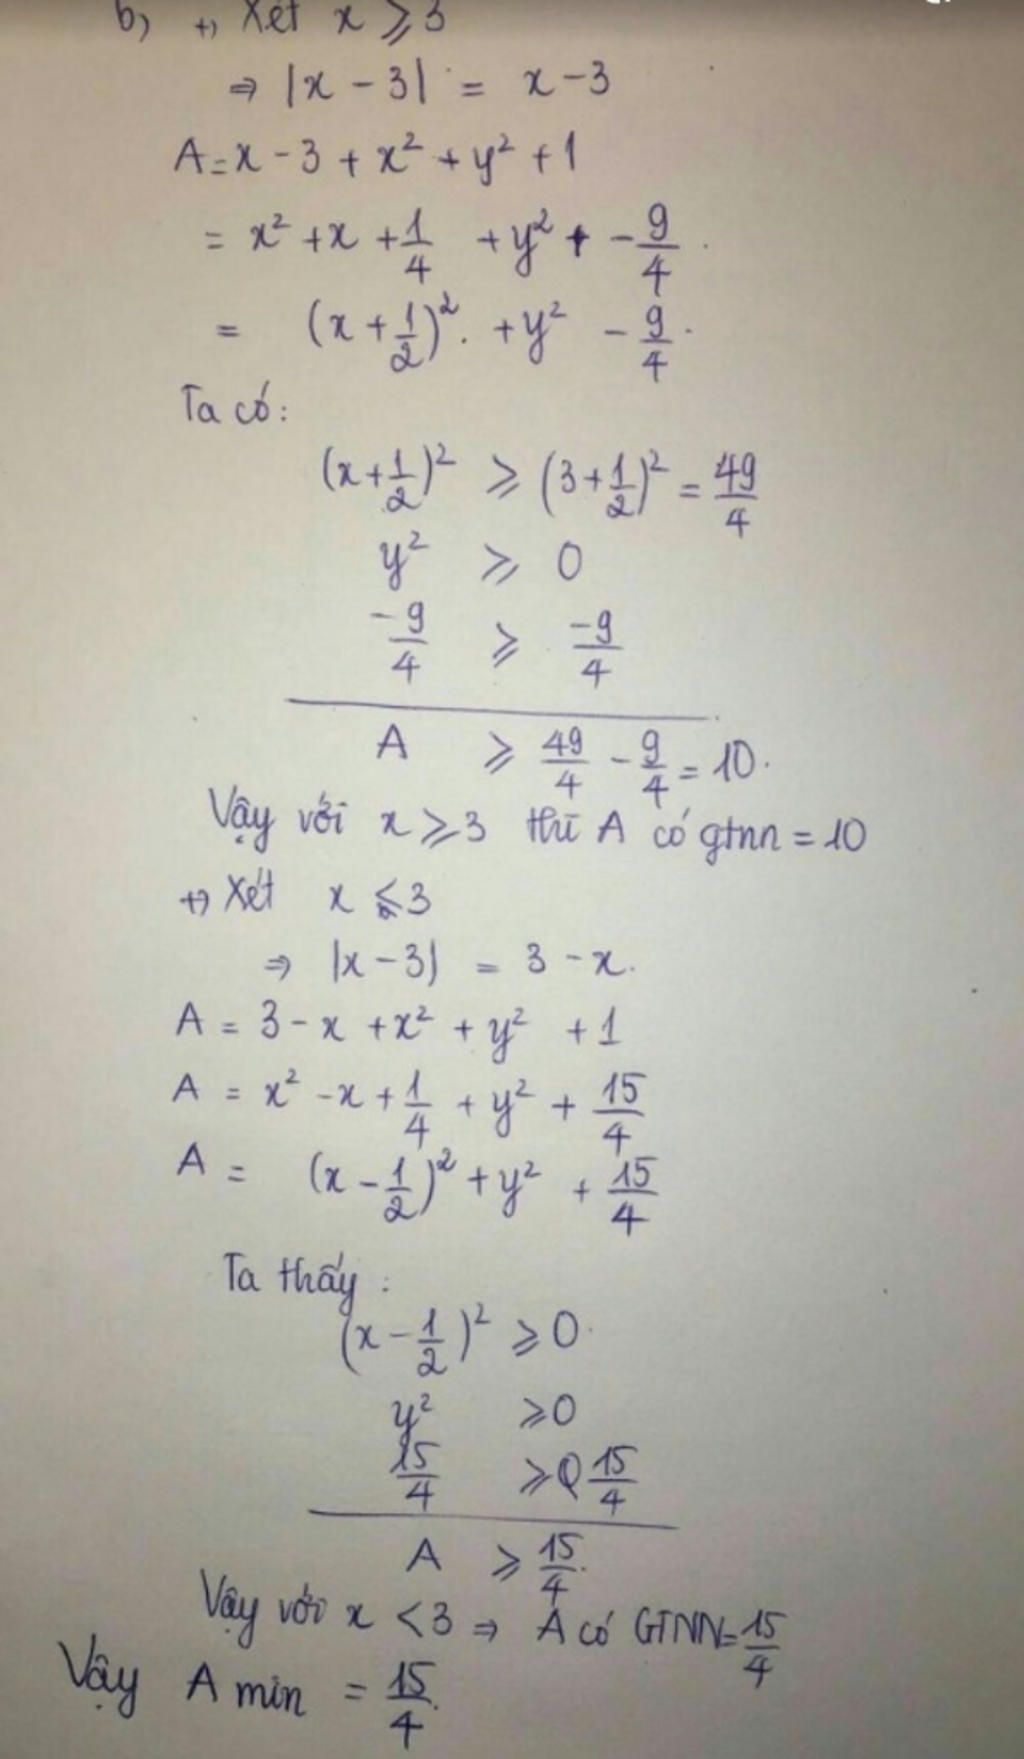 b, +, Xét x ⩾ 3
⇒ |x - 3| = x - 3
A = x - 3 + x² + y² + 1
= x² + x + 1/4 + y² + - 9/4
= (x + 1/2)². + y² - 9/4.
Ta có:
(x + 1/2)² ⩾ (3 + 1/2)² = 49/4
y² ⩾ 0
-9/4 ⩾ -9/4
A ⩾ 49/4 - 9/4 = 10.
Vậy với x ⩾ 3 thì A có gtnn = 10
+, Xét x ⩽ 3
⇒ |x - 3| = 3 - x.
A = 3 - x + x² + y² + 1
A = x² - x + 1/4 + y² + 15/4
A = (x - 1/2)² + y² + 15/4
Ta thấy:
(x - 1/2)² ⩾ 0.
y² ⩾ 0
15/4 ⩾ 0 15/4
A ⩾ 15/4.
Vậy với x < 3 ⇒ A có GTNN = 15/4
Vậy A min = 15/4.